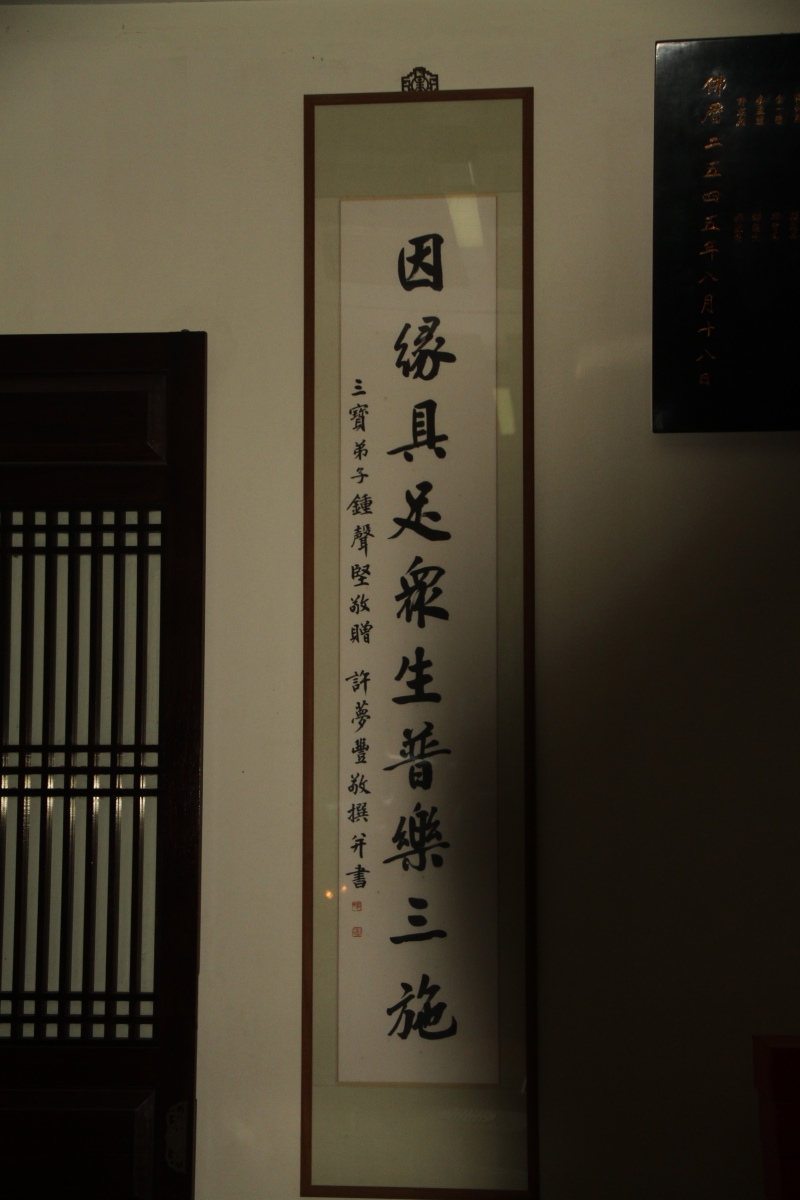 佛曆二五四五年八月十八日
因緣具足眾生普樂三施
三寶弟子鍾聲堅敬贈 許夢豐敬撰并書